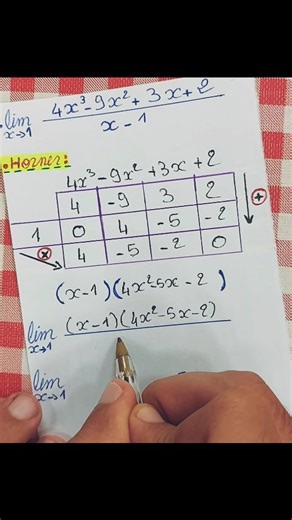 • lim x→1 4x³-9x²+3x+2 / x-1
• Horner:
4x³-9x²+3x+2
4 -9 3 2
1 0 4 -5 -2 +
x 4 -5 -2 0
(x-1)(4x²5x-2)
lim x→1 (x-1)(4x²-5x-2)
lim x→1